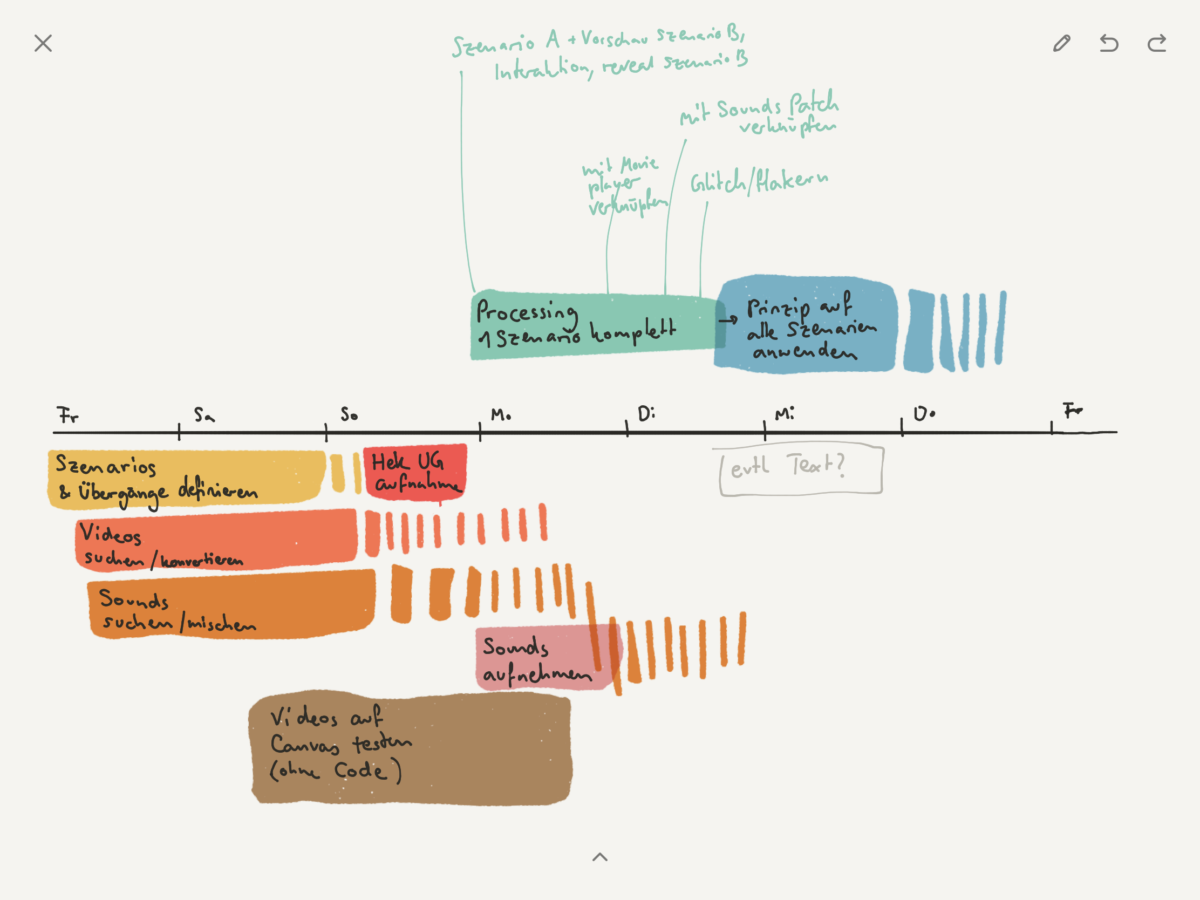 Szenario A + Vorschau Szenario B,
Interaktion, reveal Szenario B
mit Sounds Patch
verknüpfen
mit Movie
player
verknüpfen
Glitch/flakern
Processing
1 Szenario komplett
→ Prinzip auf
alle Szenarien
anwenden
Fr Sa So Mo Di Mi Do Fr
Szenarios
& Übergänge definieren
Hek UG
aufnahme
evtl Text?
Videos
suchen/konvertieren
Sounds
suchen/mischen
Sounds
aufnehmen
Videos auf
Canvas testen
(ohne Code)